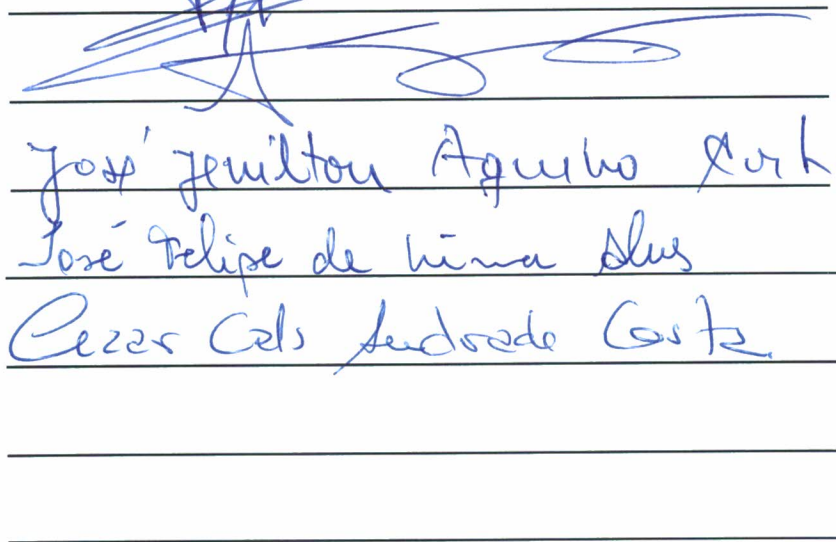 José Jenilton Aquino
José Felipe de Lima Alves
Cezar Cals Andrade Costa